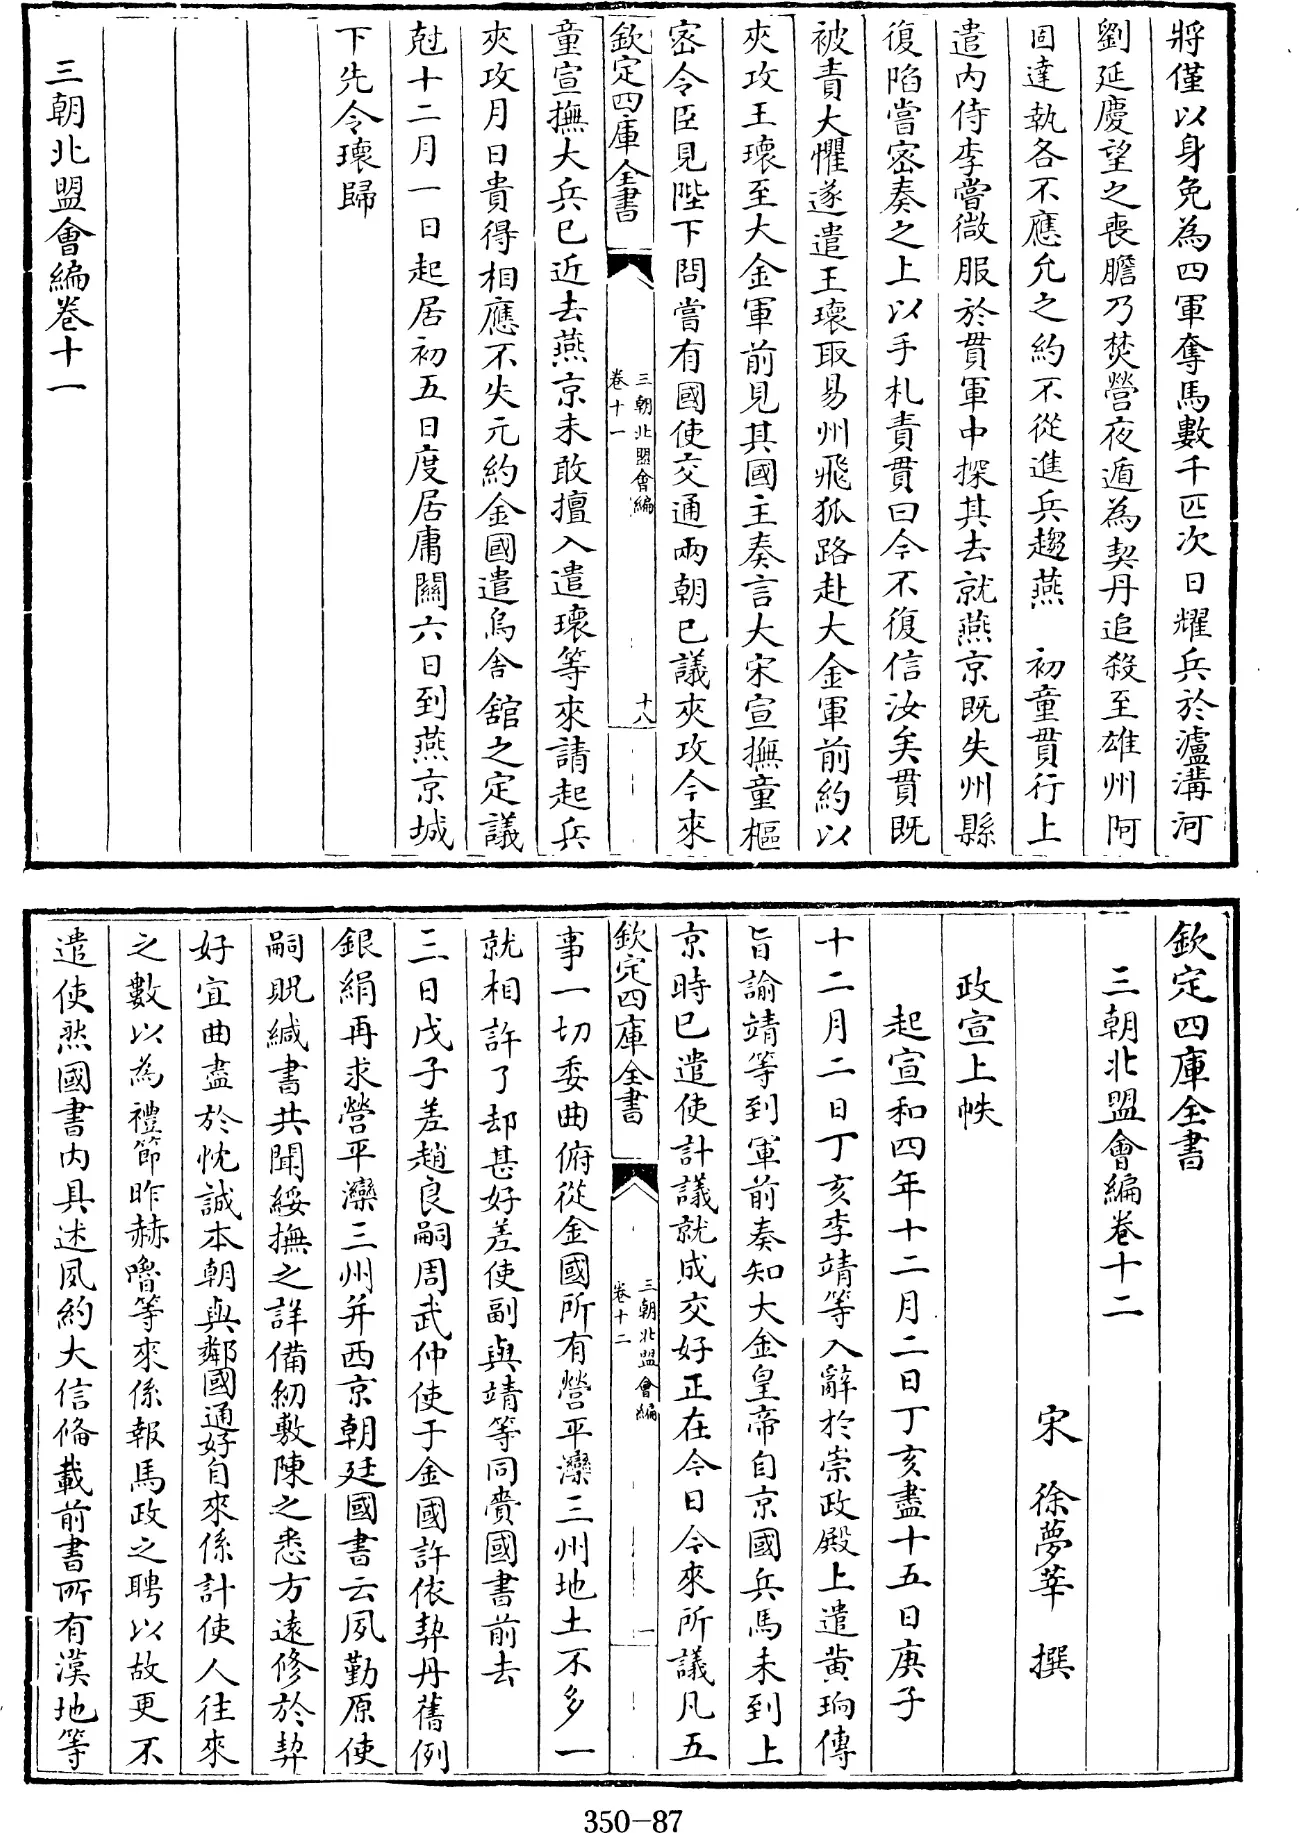 將僅以身免為四軍奪馬數千匹次日耀兵於瀘溝河
劉延慶望之喪膽乃焚營夜遁為契丹追殺至雄州阿
固達執各不應允之約不從進兵趨燕　初童貫行上
遣内侍李嘗微服於貫軍中探其去就燕京既失州縣
復陷嘗密奏之上以手札責貫曰今不復信汝矣貫既
被責大懼遂遣王瓌取易州飛狐路赴大金軍前約以
夾攻王瓌至大金軍前見其國主奏言大宋宣撫童樞
密令臣見陛下問嘗有國使交通兩朝已議夾攻今來
欽定四庫全書
三朝北盟會編
卷十一
十八
童宣撫大兵已近去燕京未敢擅入遣瓌等來請起兵
夾攻月日貴得相應不失元約金國遣烏舍舘之定議
尅十二月一日起居初五日度居庸關六日到燕京城
下先令瓌歸
三朝北盟會編卷十一
欽定四庫全書
三朝北盟會編卷十二
宋　徐夢莘　撰
政宣上帙
起宣和四年十二月二日丁亥盡十五日庚子
十二月二日丁亥李靖等入辭於崇政殿上遣黄珦傳
旨諭靖等到軍前奏知大金皇帝自京國兵馬未到上
京時已遣使計議就成交好正在今日今來所議凡五
欽定四庫全書
三朝北盟會編
卷十二
一
事一切委曲俯從金國所有營平灤三州地土不多一
就相許了却甚好差使副與靖等同賫國書前去
三日戊子差趙良嗣周武仲使于金國許依契丹舊例
銀絹再求營平灤三州并西京朝廷國書云夙勤原使
嗣貺緘書共聞綏撫之詳備紉敷陳之悉方遠修於契
好宜曲盡於忱誠本朝與鄰國通好自來係計使人往來
之數以為禮節昨赫嚕等來係報馬政之聘以故更不
遣使然國書内具述夙約大信脩載前書所有漢地等
350-87